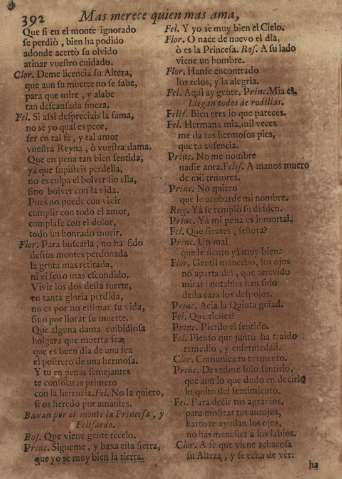 392 Mas merece quien mas ama,
Que si en el monte ignorado
se perdiò, bien ha podido
adonde acertò su olvido
atinar vuestro cuidado.
Clor. Deme licencia su Alteza,
que aun su muerte no se sabe,
para que mire, y alabe
tan descansada fineza.
Fel. Si assi despreciais la fama,
no se yo qual es peor,
ser en tal fe, y tal amor
vuestra Reyna, ò vuestra dama.
Que en pena tan bien sentida,
ya que supisteis perdella,
no es culpa el bolver sin ella,
sino bolver con la vida.
Pues no puede con vivir
cumplir con todo el amor,
cumplisse con el dolor,
todo un honrado morir.
Flor. Para buscarla, no ha sido
destos montes perdonada
la gruta mas retirada,
ni el seno mas escondido.
Vivir los dos desta suerte,
en tanta gloria perdida,
no es por no estimar su vida,
sino por llorar su muerte.
Que alguna dama embidiosa
holgara que muerta sea,
que es buen dia de una fea
el postrero de una hermosa.
Y tu en penas semejantes
te consolaste primero
con la herencia. Fel. No la quiero,
si os heredo por amantes.
Baxan por el monte la Princesa, y
Felisardo.
Ros. Que viene gente recelo.
Princ. Sigueme, y baxa esta sierra,
que yo se muy bien la tierra.
Fel. Y yo se muy bien el Cielo.
Flor. O nace de nuevo el dia,
ò es la Princesa. Ros. A su lado
viene un hombre.
Flor. Hanse encontrado
los zelos, y la alegria.
Fel. Aqui ay gente. Princ. Mia es.
Llegan todos de rodillas.
Felis. Bien eres lo que pareces.
Fel. Hermana mia, mil veces
me da tus hermosos pies,
que tu ausencia.
Princ. No me nombre
nadie Anca. Felis. A manos muero
de mis temores.
Princ. No quiero
que le acobarde mi nombre.
Ros. Ya se cumpliò su desseo.
Princ. Ya mi pena es inmortal.
Fel. Que sientes, señora?
Princ. Un mal
que le siento, y muy bien.
Flor. Gentil mancebo, los ojos
no aparta del, que atrevido
mirar
Princ. Azia la Quinta guiad.
Fel. Què tienes?
Princ. Pierdo el sentido.
Fel. Pienso que juntos ha traido
remedio, y enfermedad.
Clor. Comunica tu tormento.
Princ. Dexadme solo sentirlo,
que aun lo que dudo en decirlo
le quito del sentimiento.
Fel. Para decir tus agravios,
para mostrar tus enojos,
harto te ayudan los ojos,
no has menester a los labios.
Clor. A fe que viene achacosa
su Alteza, y se echa de ver:
ha